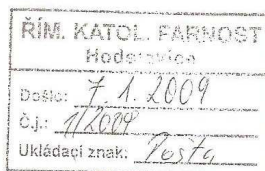 ŘÍM. KATOL. FARNOST
Došlo: 7. 1. 2009
Č.j.: 1/2009
Ukládací znak: Pošta